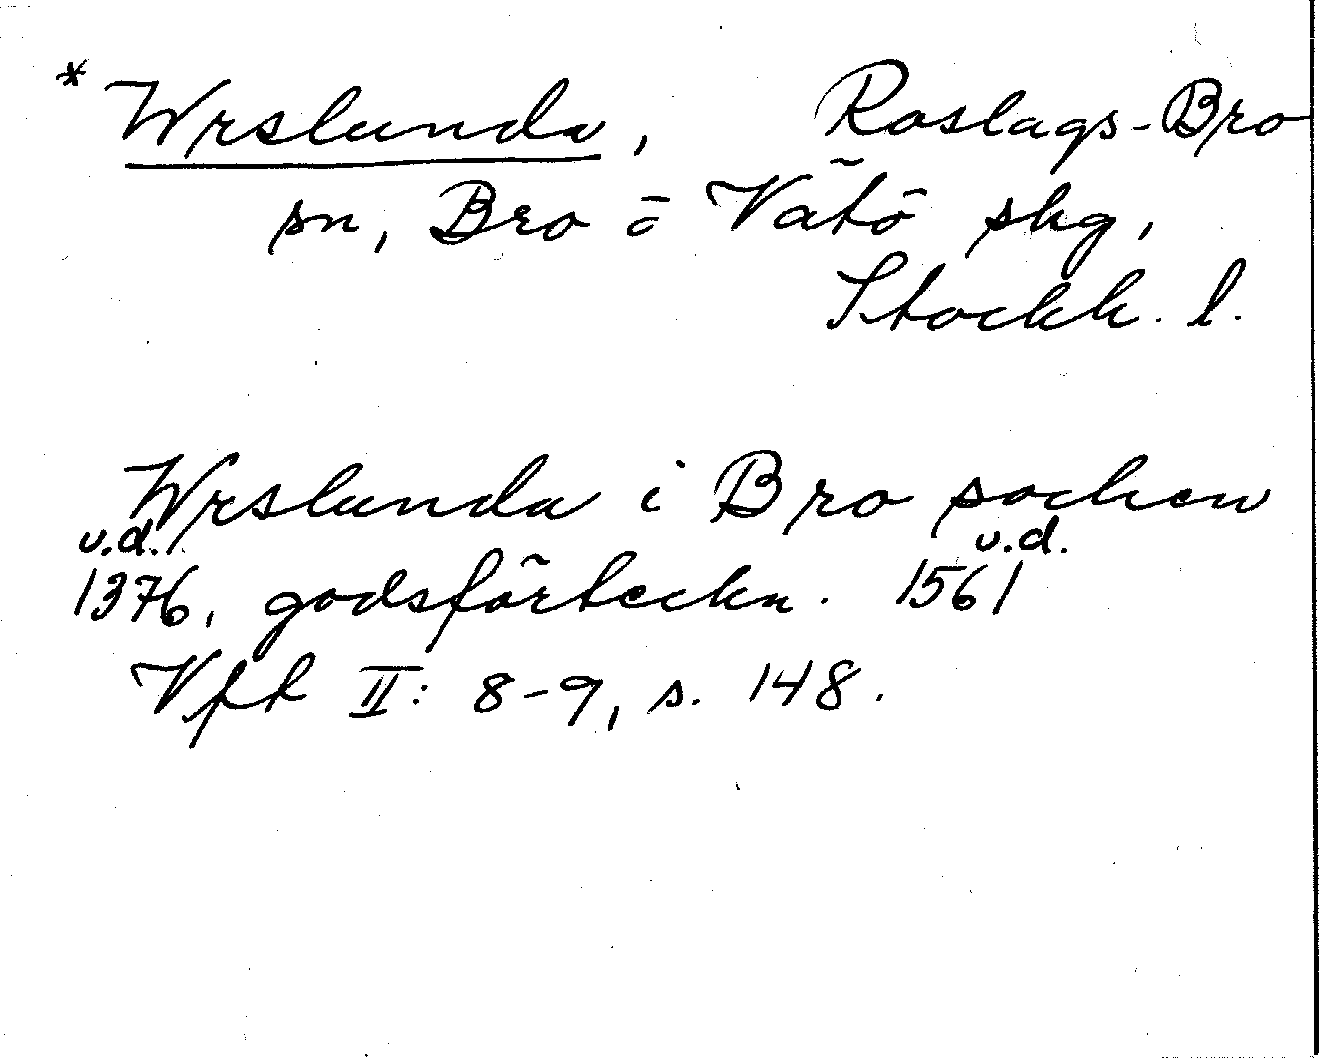 * Wrslunda, Roslags-Bro
sn, Bro o Vätö skg,
Stockh. l.
Wrslunda i Bro sochen
u.d. u.d.
1376, godsförteckn. 1561
Vfk II: 8-9, s. 148.